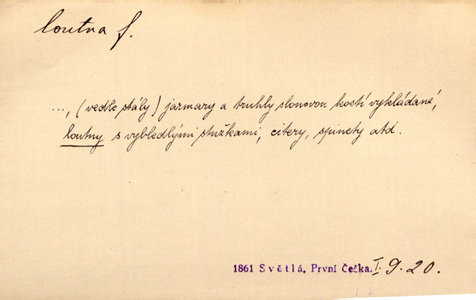 loutna f.
..., (vedle stály) jarmary a truhly slonovou kostí vykládané,
loutny s vybledlými stužkami, citery, spinety atd.
1861 Světlá, První Češka. I. 9. 20.